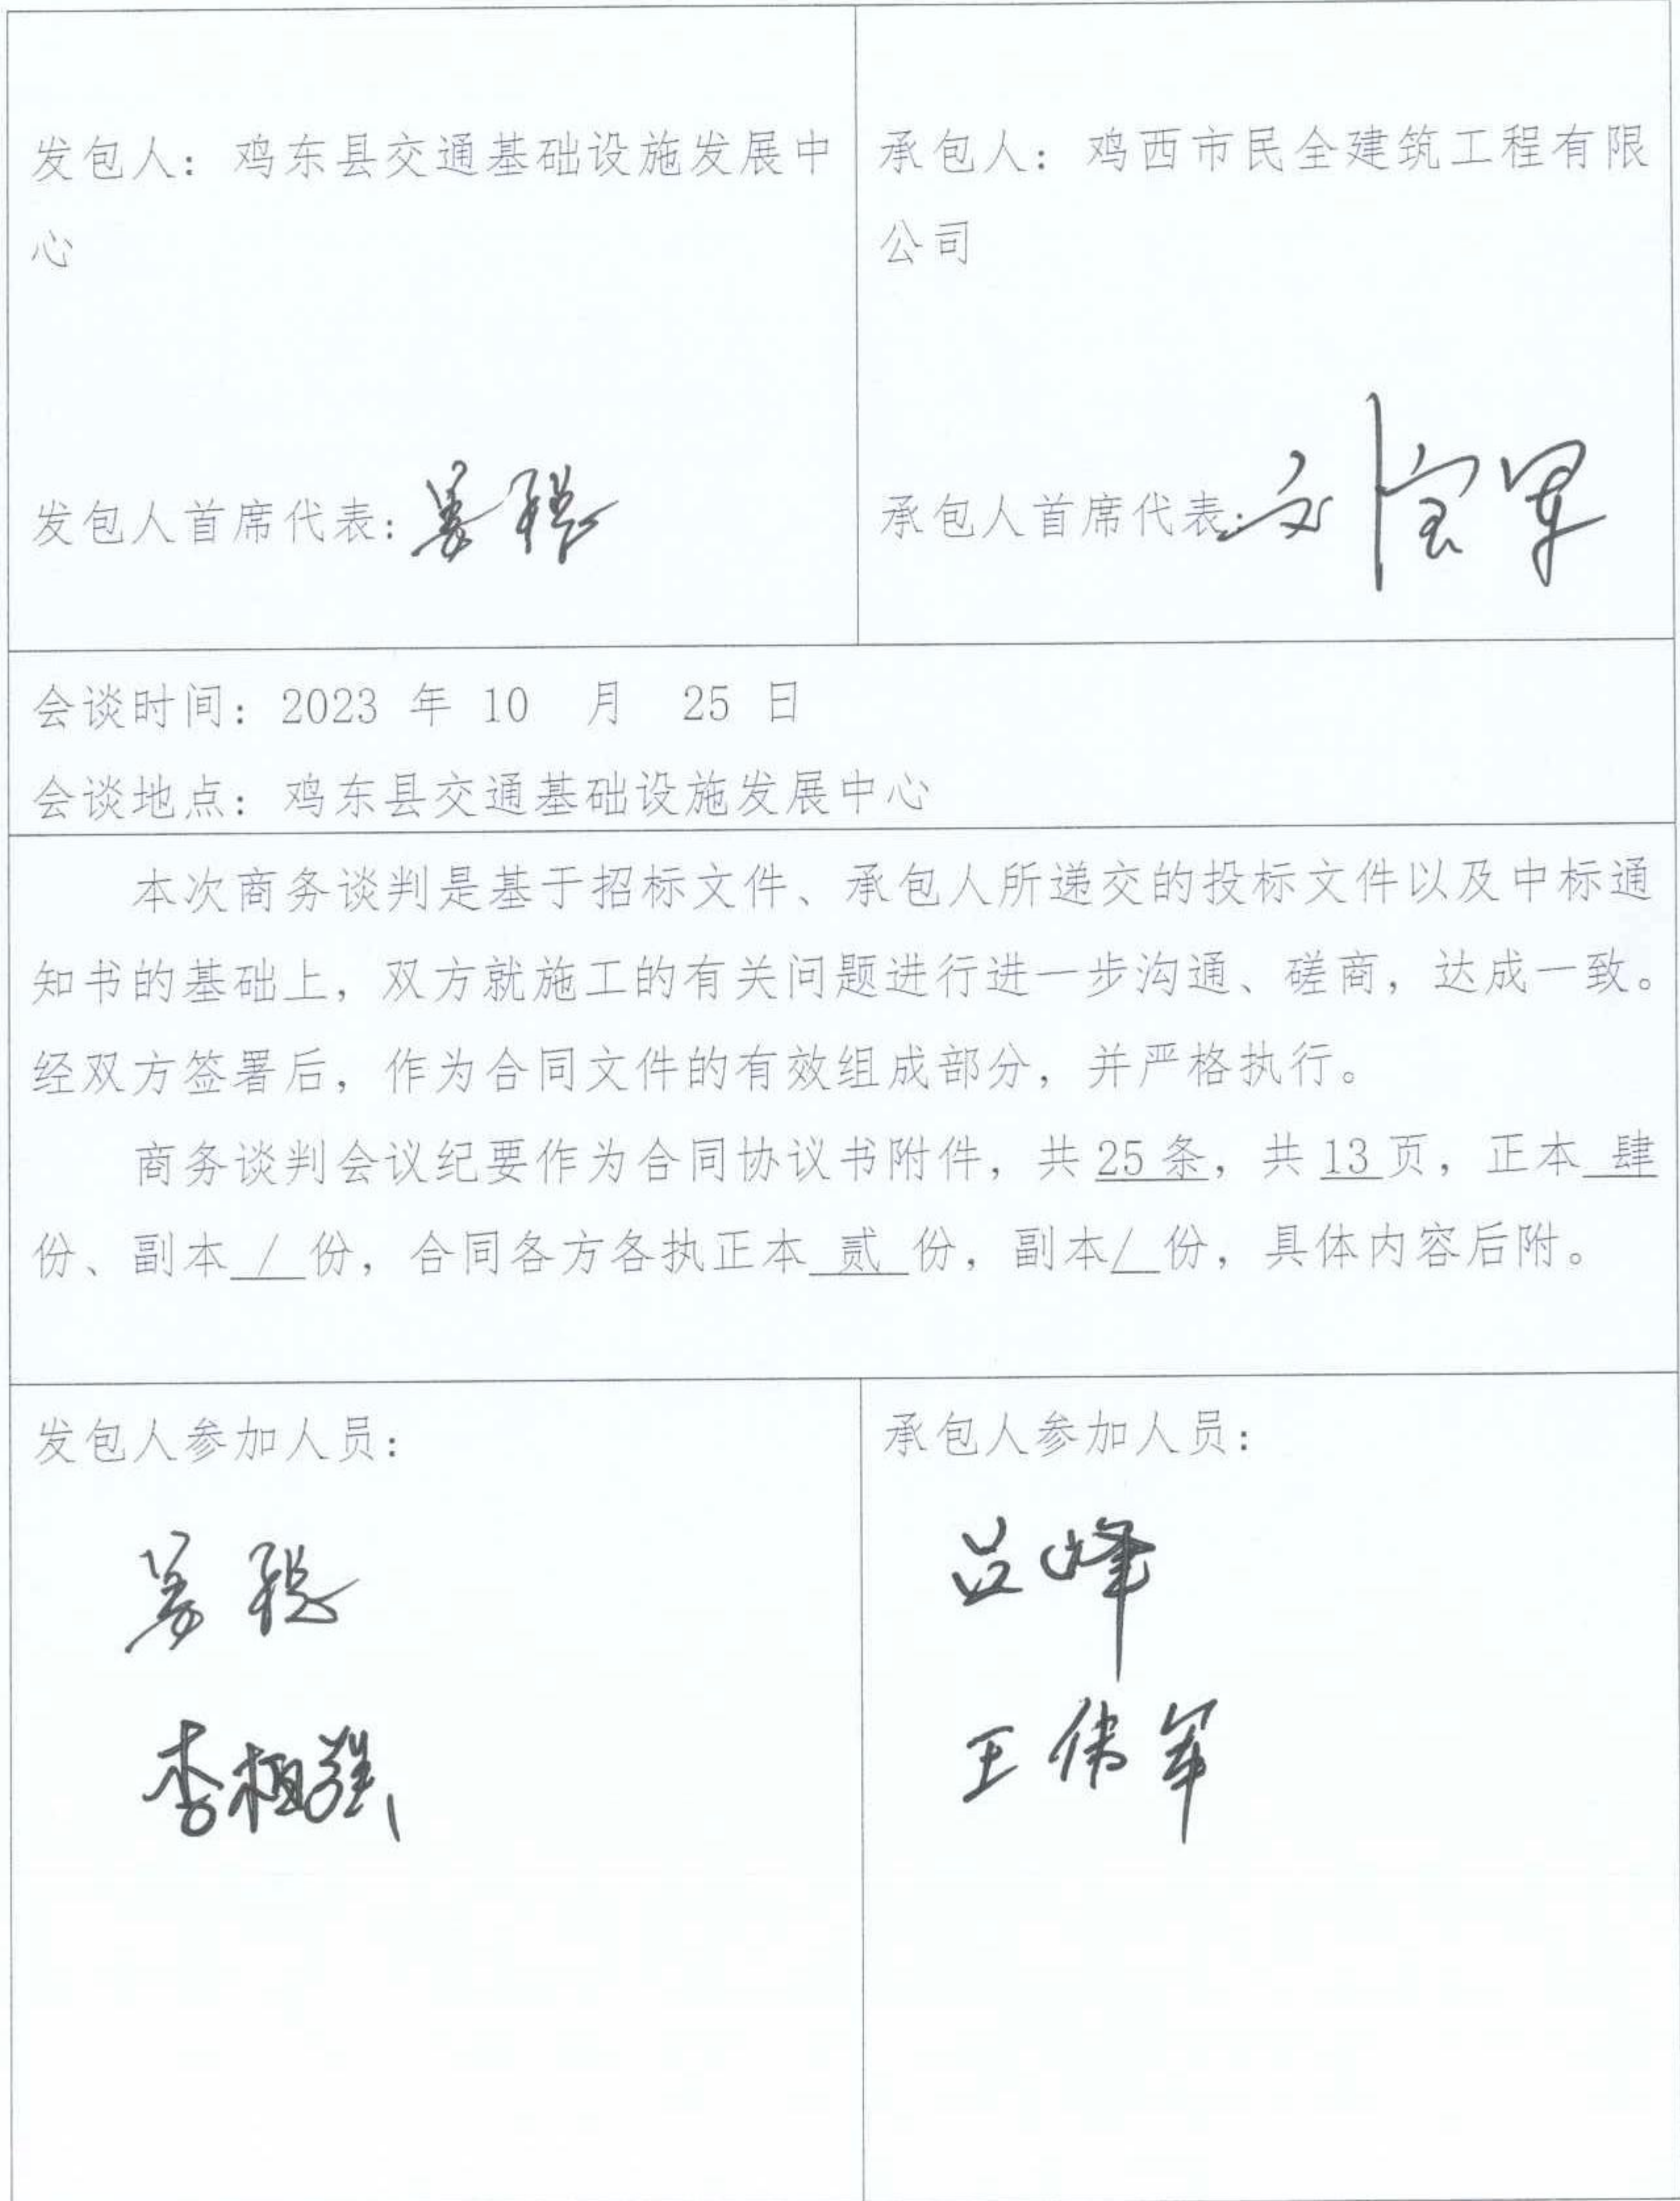 发包人：鸡东县交通基础设施发展中
心
承包人：鸡西市民全建筑工程有限
公司
发包人首席代表：姜稳
承包人首席代表：刘宝军
会谈时间：2023 年 10 月 25 日
会谈地点：鸡东县交通基础设施发展中心
本次商务谈判是基于招标文件、承包人所递交的投标文件以及中标通
知书的基础上，双方就施工的有关问题进行进一步沟通、磋商，达成一致。
经双方签署后，作为合同文件的有效组成部分，并严格执行。
商务谈判会议纪要作为合同协议书附件，共 25 条，共 13 页，正本 肆
份、副本 / 份，合同各方各执正本 贰 份，副本/ 份，具体内容后附。
发包人参加人员：
姜稳
李相强
承包人参加人员：
吕峰
王伟军